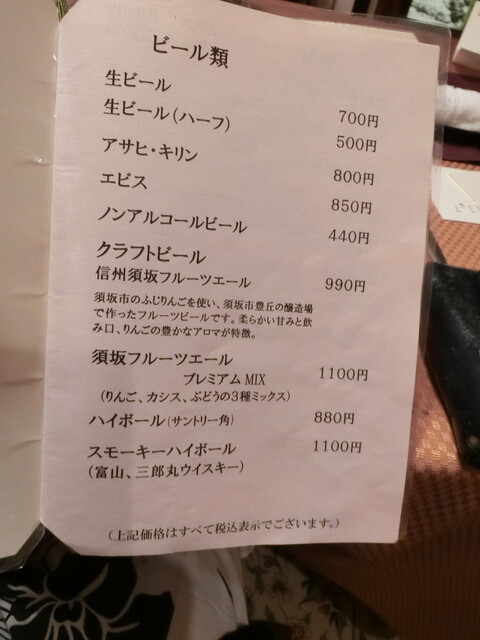 ビール類
生ビール 700円
生ビール(ハーフ) 500円
アサヒ・キリン 800円
エビス 850円
ノンアルコールビール 440円
クラフトビール
信州須坂フルーツエール 990円
須坂市のふじりんごを使い、須坂市豊丘の醸造場
で作ったフルーツビールです。柔らかい甘みと飲
み口、りんごの豊かなアロマが特徴。
須坂フルーツエール
プレミアム MIX 1100円
(りんご、カシス、ぶどうの3種ミックス)
ハイボール(サントリー角) 880円
スモーキーハイボール 1100円
(富山、三郎丸ウイスキー)
(上記価格はすべて税込表示でございます。)